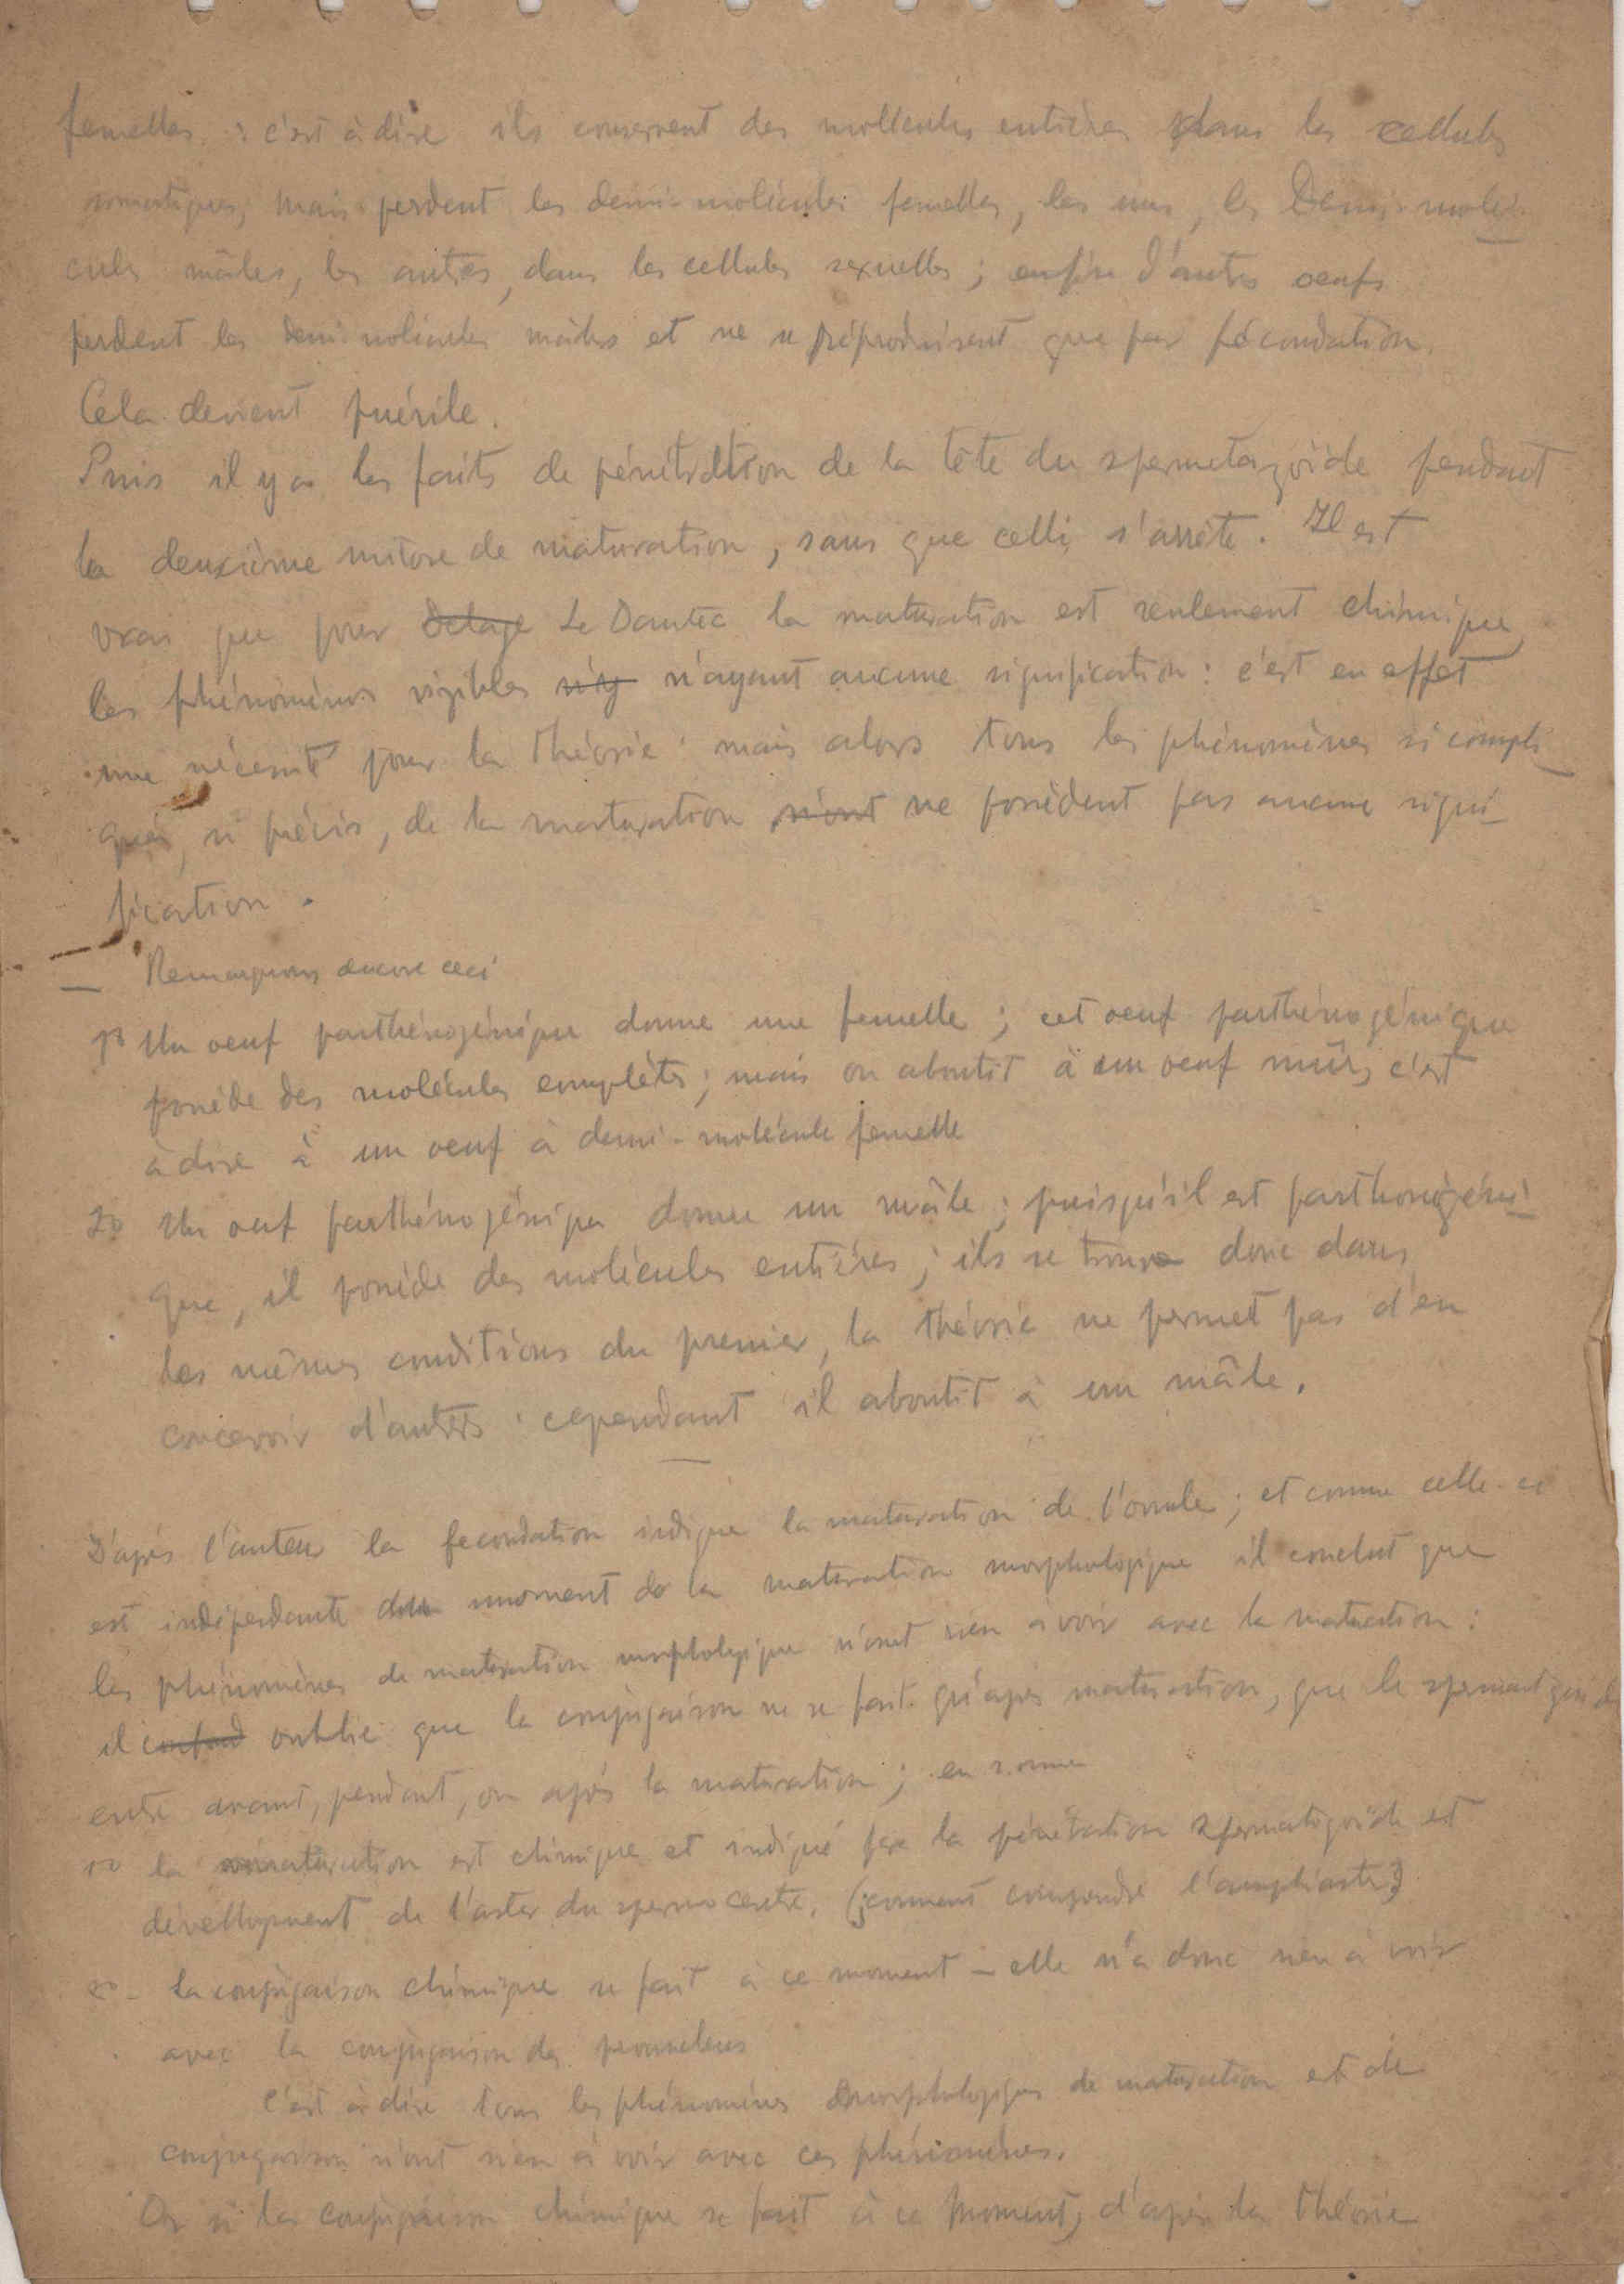 femelles : c'est à dire ils conservent des mollécules entières dans les cellules
somatiques, mais perdent les demi-molécules femelles, les uns, les Demi-molé-
cules mâles, les autres, dans les cellules sexuelles ; enfin d'autres oeufs
perdent les demi molécules mâles et ne se réproduisent que par fécondation.
Cela devient puérile.
Puis il y a les faits de pénétration de la tête du spermetozoïde pendant
la deuxième mitose de maturation, sans que celli s'arrète. Il est
vrai que pour Delage Le Dantec la maturation est seulement chimique,
les phénomènes vizibles n'ay n'ayant aucune signification : c'est en effet
une nécessité pour la théorie : mais alors tous les phénomènes si compli_
qués, si précis, de la maturation n'ont ne possèdent pas aucune signi_
fication .
— Remarquons encore ceci
1º Un oeuf parthénogénique donne une femelle ; cet oeuf parthénogénique
possède des molécules complètes ; mais on aboutit à un oeuf mûr, c'est
à dire à un oeuf à demi-molécule femelle
2º Un oeuf parthénogénique donne un mâle ; puisqu'il est parthenogéni_
que, il possède des molécules entières ; ils se trouve donc dans
les mêmes conditions du premier, la théorie ne permet pas d'en
concevoir d'autres : cependant il aboutit à un mâle.
D'après l'auteur la fecondation indique la maturation de l'ovule ; et comme celle-ci
est indépendante du moment de la maturation morphologique il conclut que
les phénomènes de maturation morphologique n'ont rien à voir avec la maturation :
il confond oublie que la conjugaison ne se fait qu'après maturation, que le spermatozoïde
entre avant, pendant, ou après la maturation ; en somme
1º la maturation est chimique et indiqué par la pénétration spermatozoïde et
dévellopment de l'aster du spermocentre. (comment comprendre l'amphiaster?)
2º - La conjugaison chimique se fait à ce moment — elle n'a donc rien à voir
avec la conjugaison des pronucleus
C'est à dire tous les phénomènes morphologiques de maturation et de
conjugaison n'ont rien à voir avec ces phénomènes.
Or si la conjugaison chimique se fait à ce moment, d'après la théorie